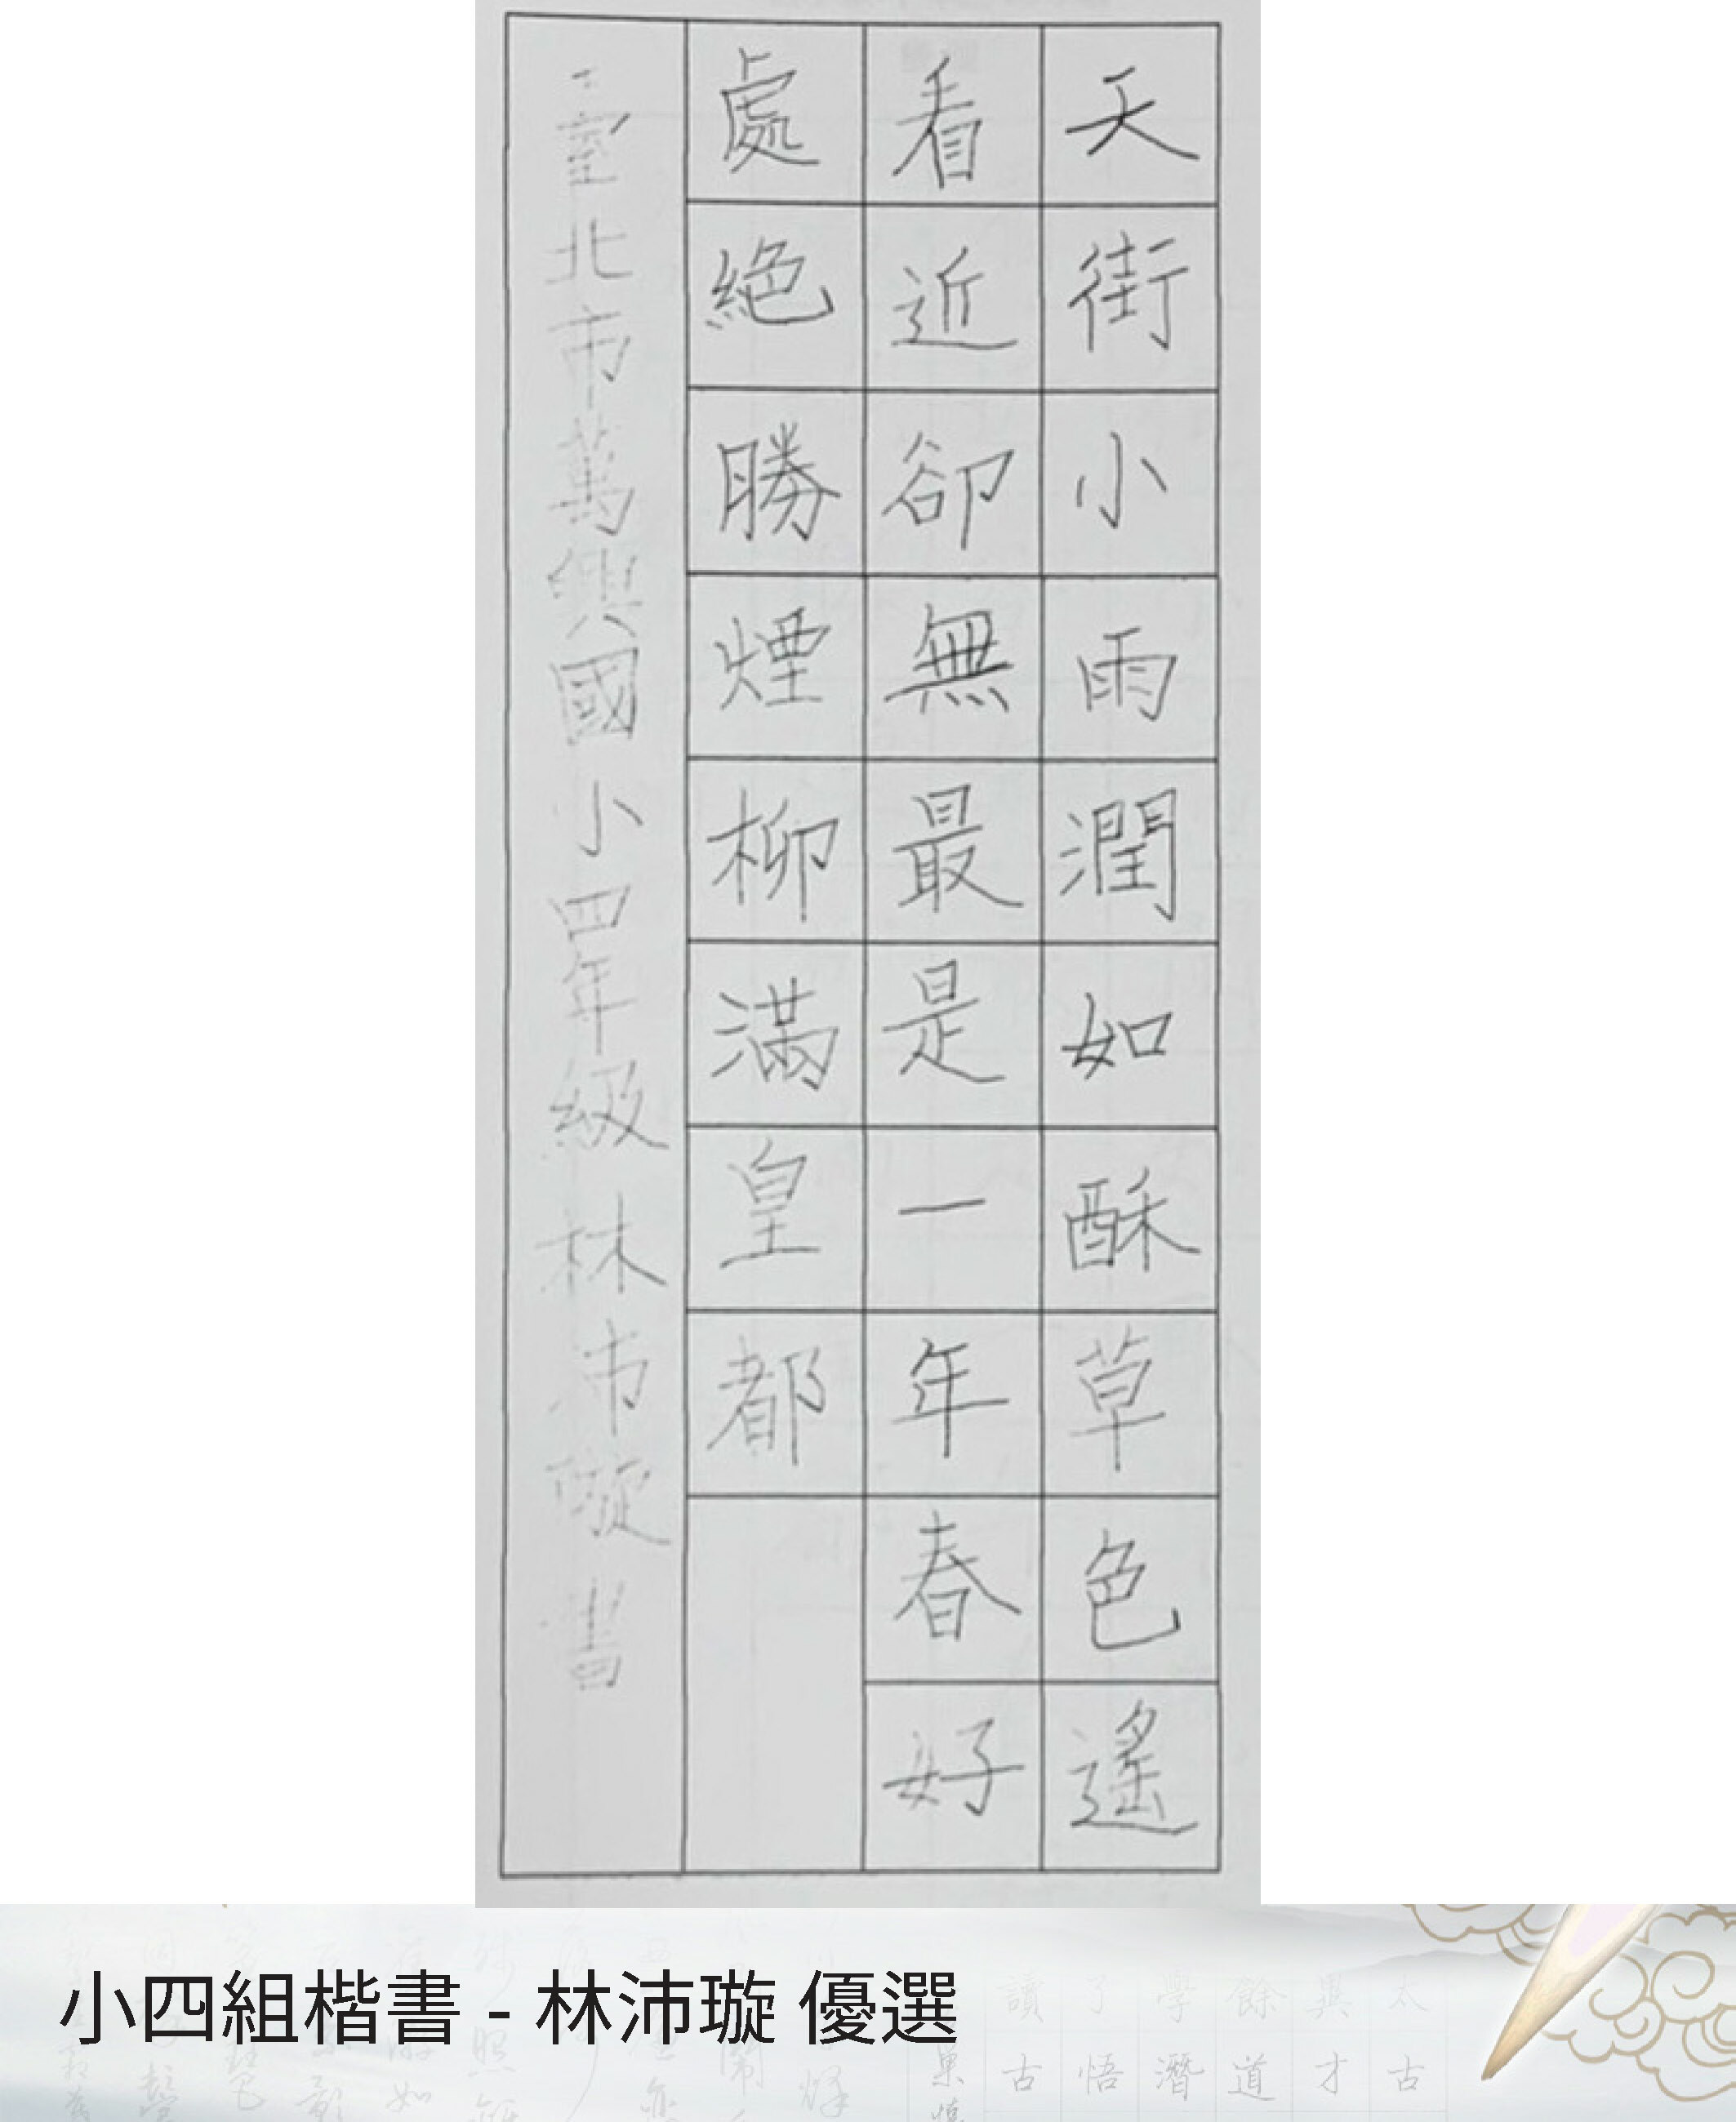 天街小雨潤如酥草色遙
看近卻無最是一年春好
處絕勝煙柳滿皇都
臺北市萬興國小四年級林沛璇書
小四組楷書 - 林沛璇 優選
讀了學餘與太
古悟潛道才古